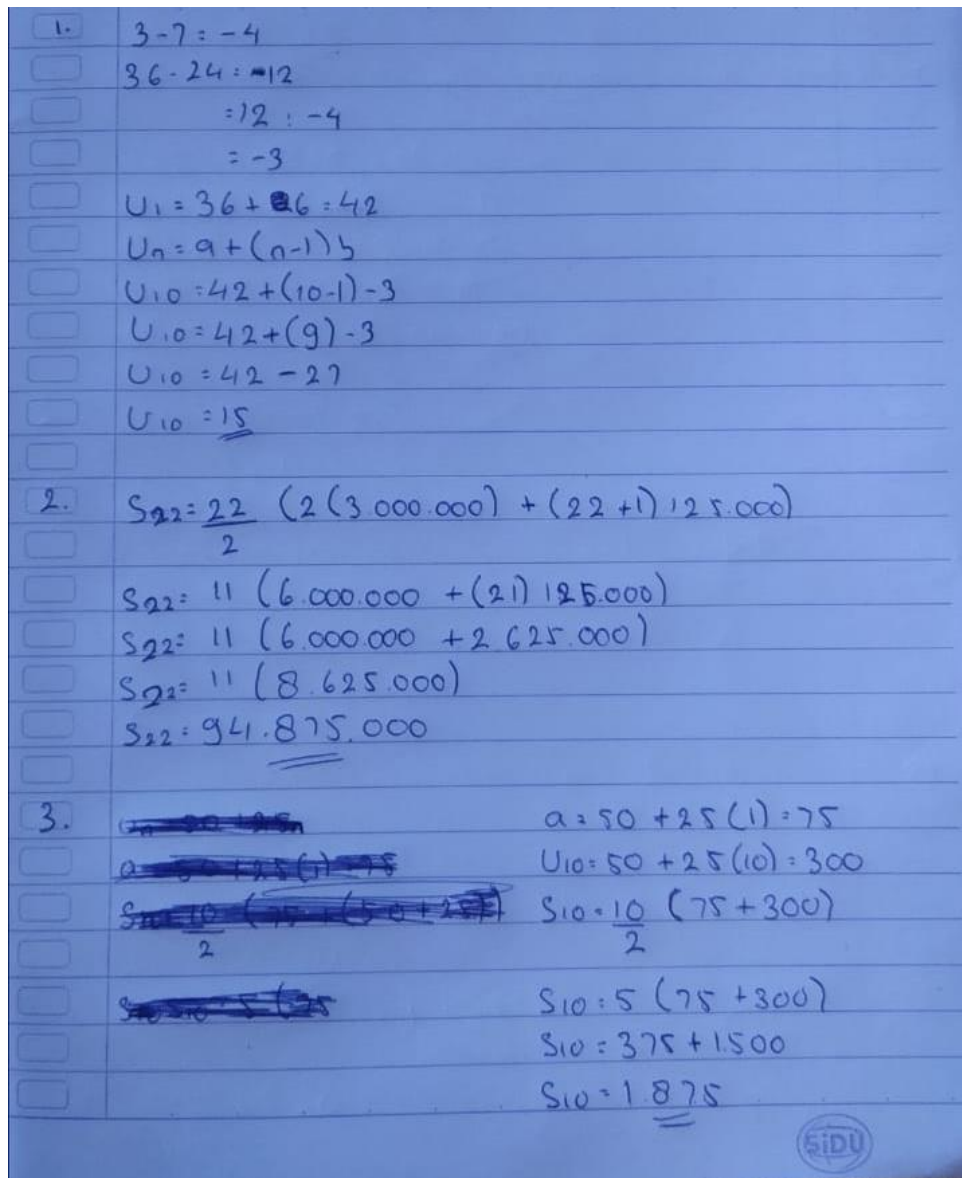 1. 3-7 = -4
36 - 24 = -12
= 12 : -4
= -3
U1 = 36 + 6 = 42
Un = a + (n-1) b
U10 = 42 + (10-1) -3
U10 = 42 + (9) -3
U10 = 42 - 27
U10 = 15
2. S22 = 22/2 (2(3.000.000) + (22+1) 125.000)
S22 = 11 (6.000.000 + (21) 125.000)
S22 = 11 (6.000.000 + 2.625.000)
S22 = 11 (8.625.000)
S22 = 94.875.000
3. a = 50 + 25(1) = 75
U10 = 50 + 25(10) = 300
S10 = 10/2 (75 + 300)
S10 = 5 (75 + 300)
S10 = 375 + 1.500
S10 = 1.875
SiDU